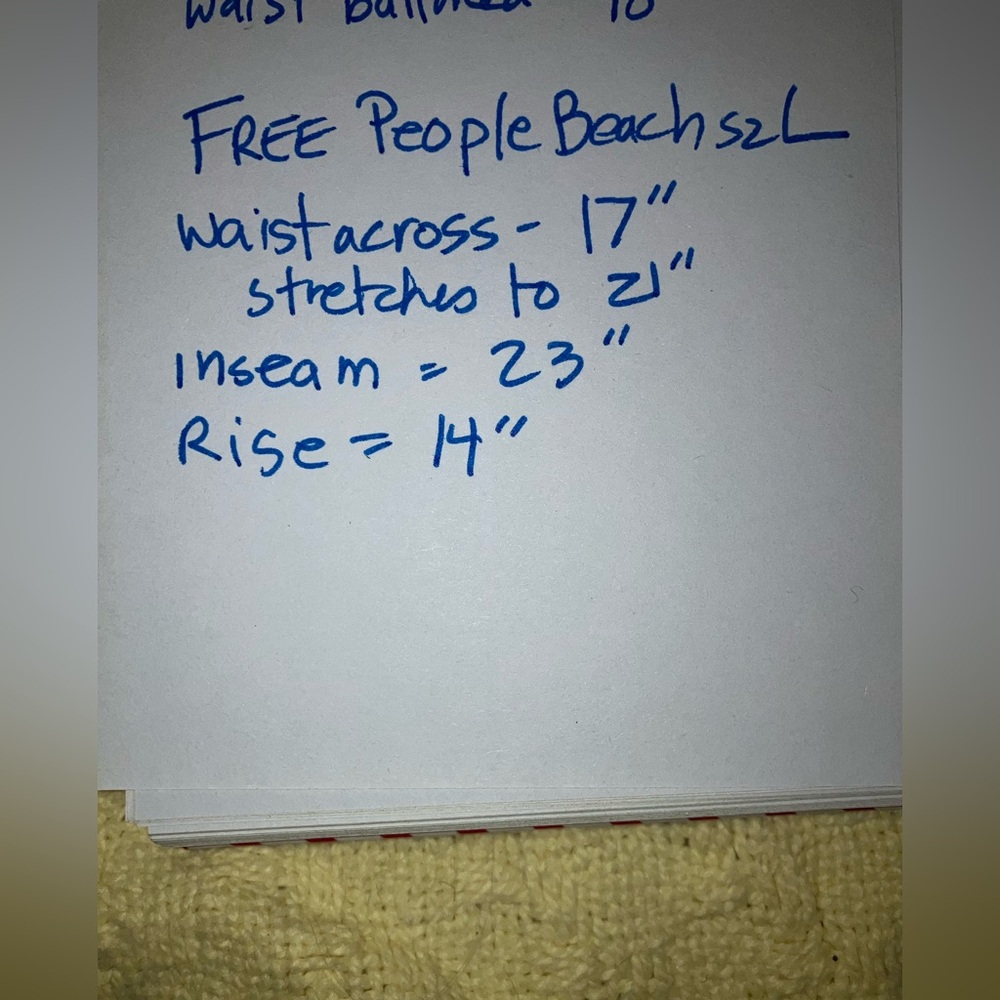 waist
FREE People Beach sz L
waist across - 17"
stretches to 21"
inseam = 23"
Rise = 14"